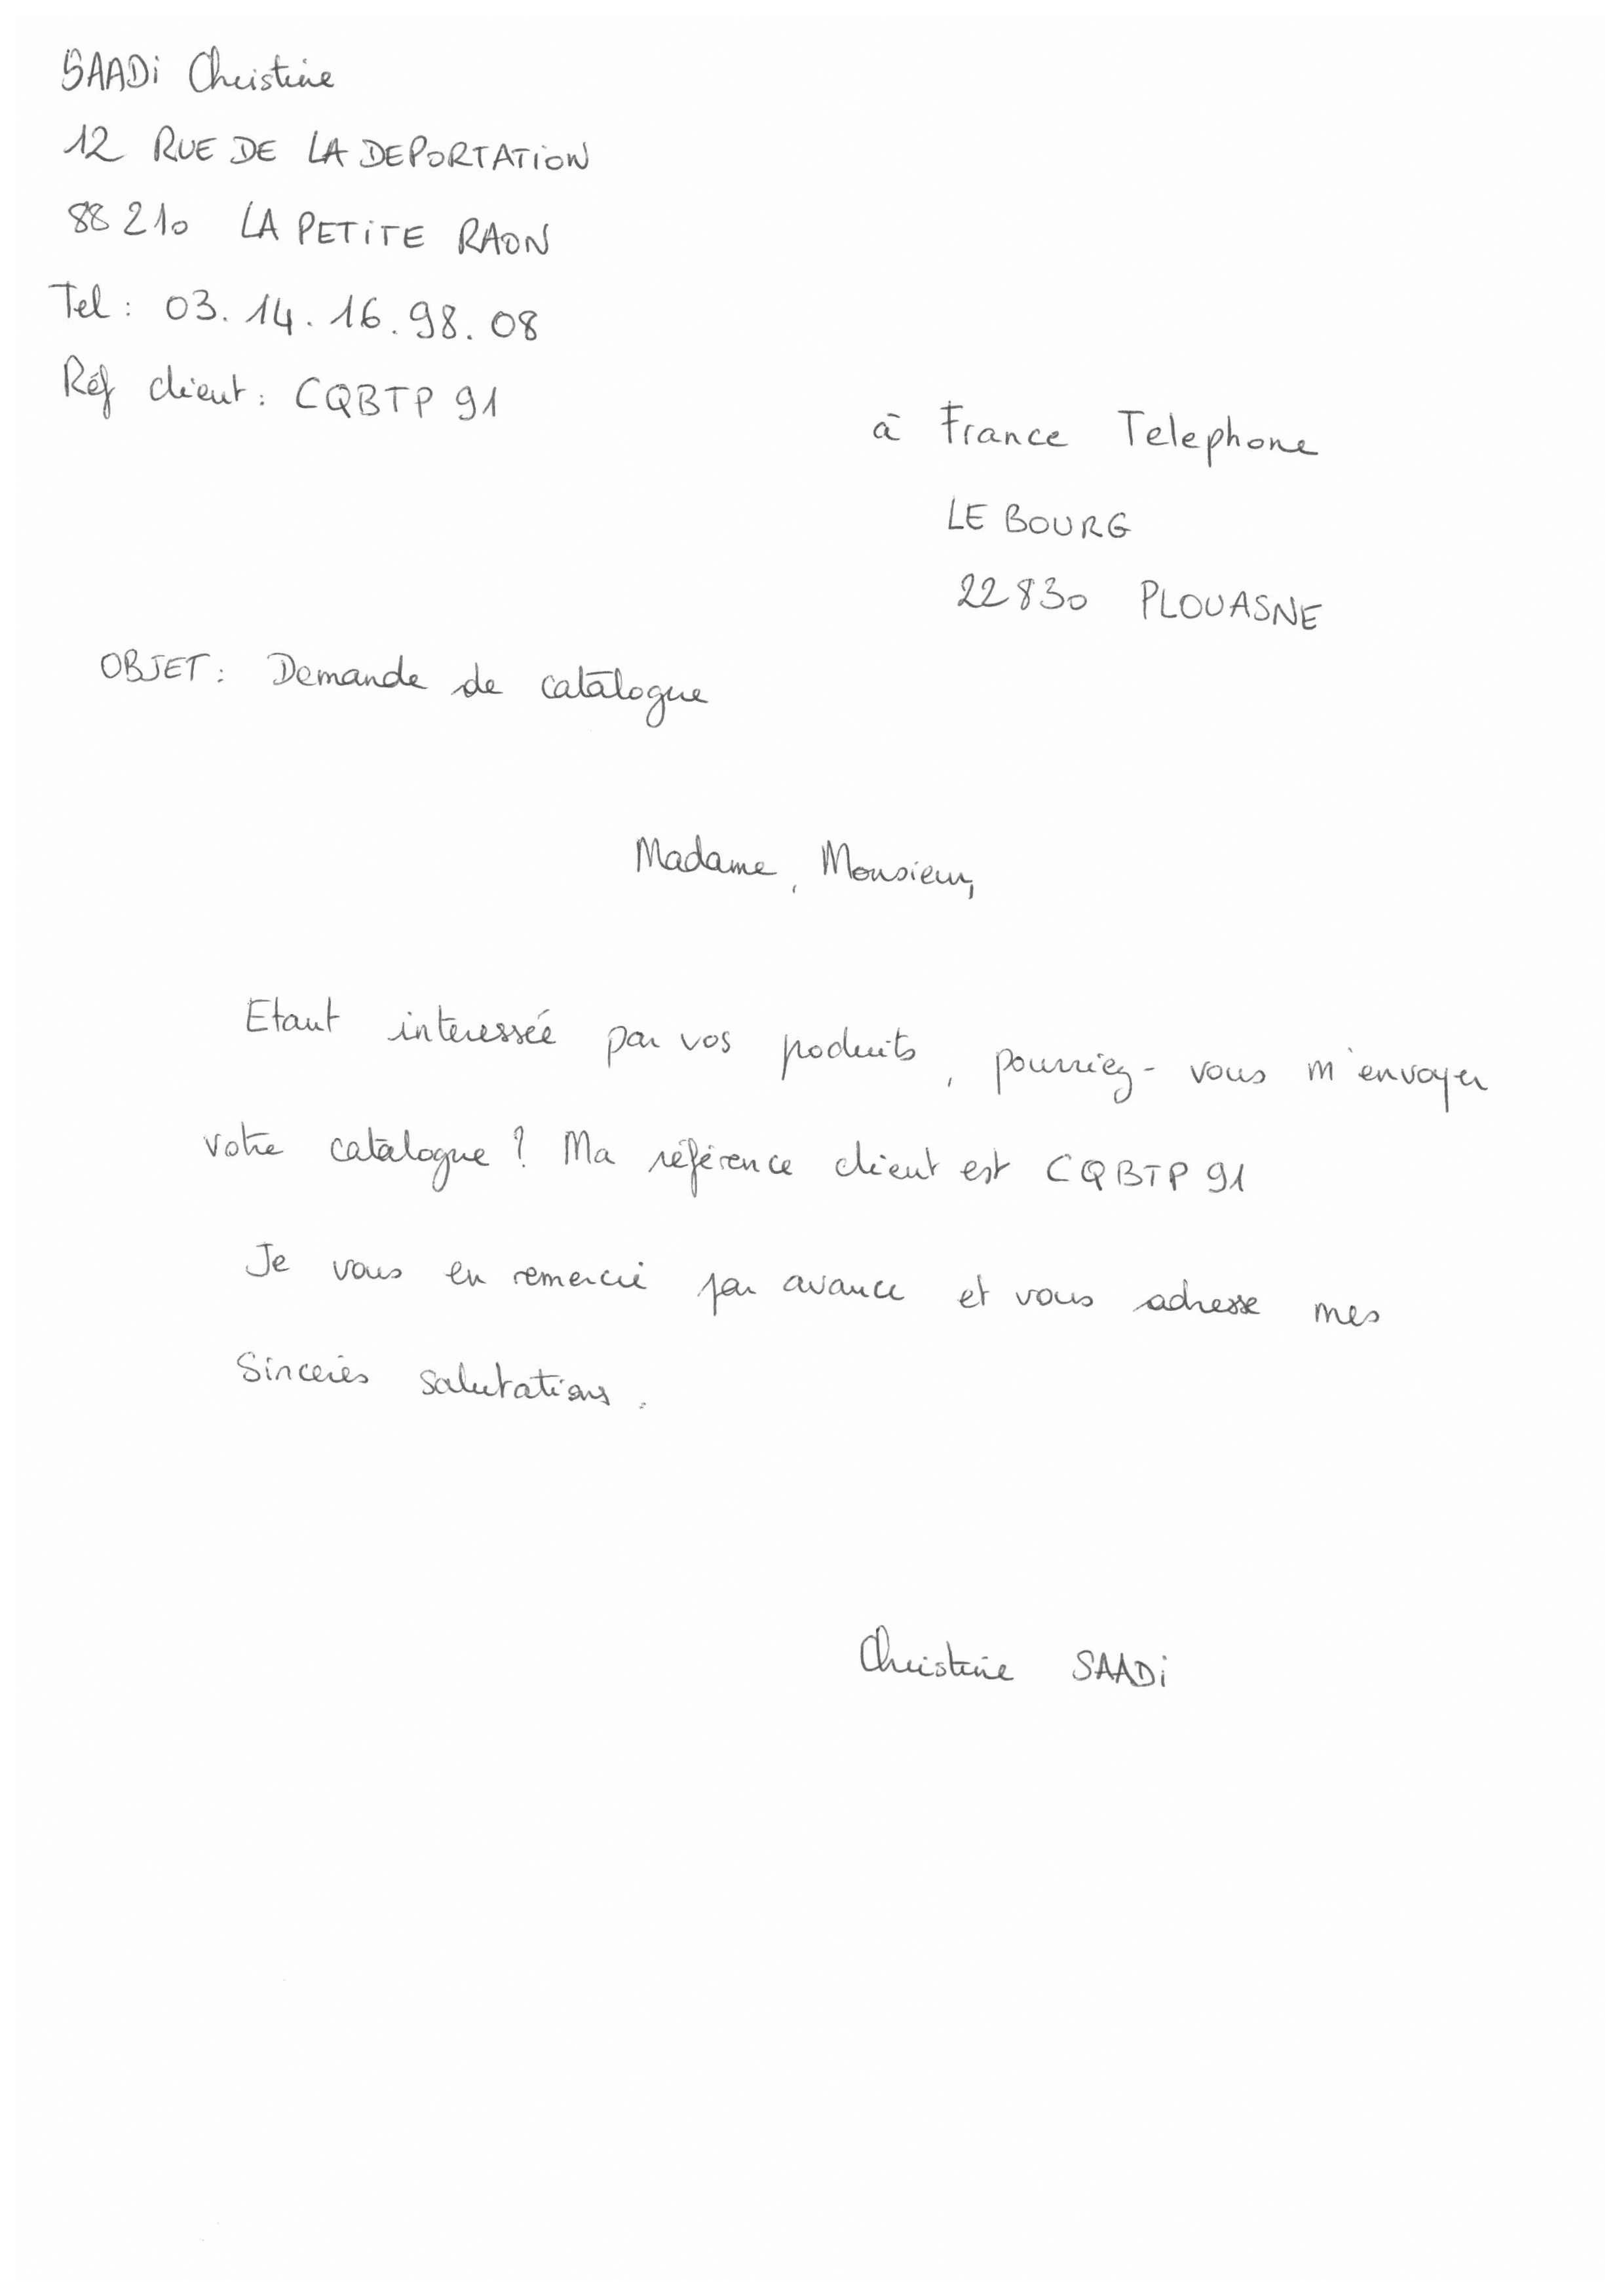 SAADi Christine
12 RUE DE LA DEPORTATiON
88210 LA PETiTE RAON
Tel : 03.14.16.98.08
Réf client : CQBTP 91
à France Telephone
LE BOURG
22830 PLOUASNE
OBJET : Demande de catalogue
Madame, Monsieur,
Etant interessée par vos produits, pourriez-vous m'envoyer
votre catalogue ? Ma référence client est CQBTP 91
Je vous en remercie par avance et vous adresse mes
Sincères salutations.
Christine SAADi